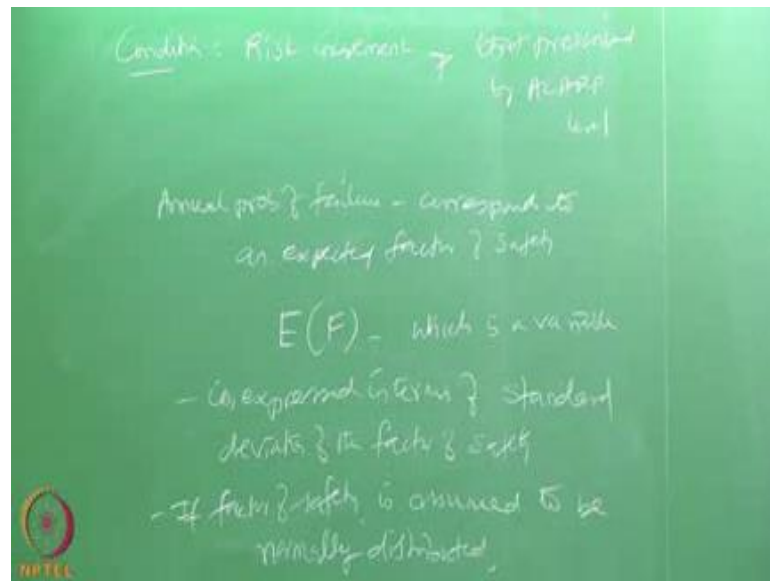 Condition: Risk assessment → presented
by ALARP
level
Annual prob of failure - corresponds to
an expected factor of safety
E(F) - which is a variable
- is expressed in terms of standard
deviation of the factor of safety
- If factor of safety is assumed to be
normally distributed,
NPTEL